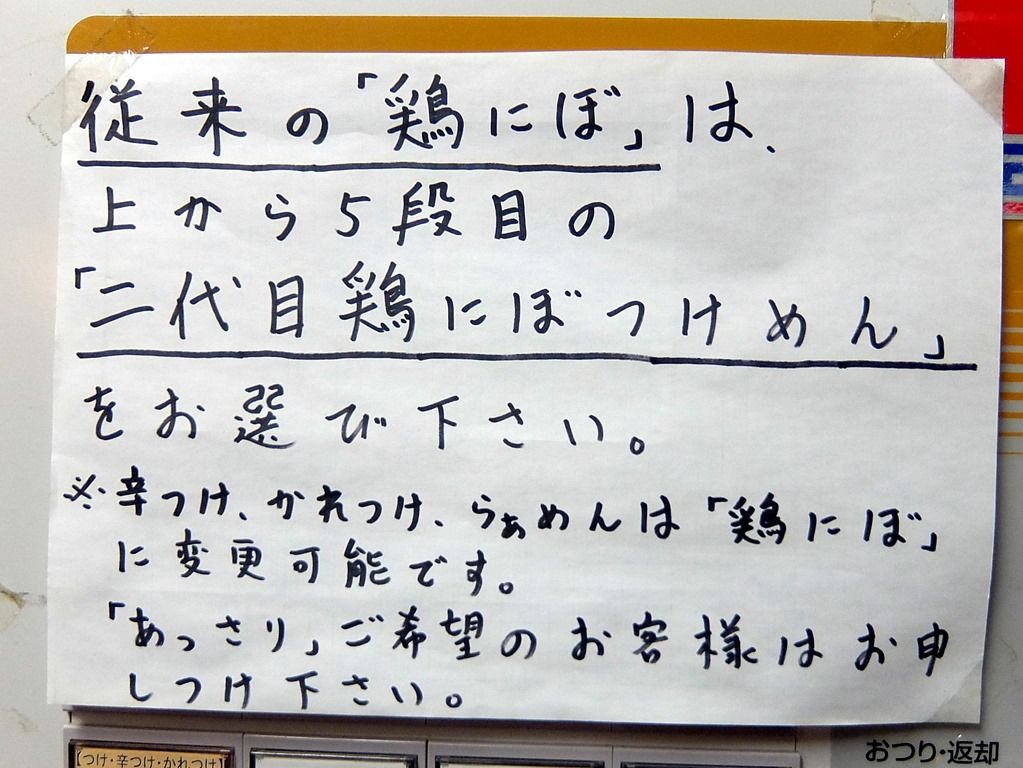 従来の「鶏にぼ」は、
上から5段目の
「二代目鶏にぼつけめん」
をお選び下さい。
※辛つけ、かれつけ、らぁめんは「鶏にぼ」
に変更可能です。
「あっさり」ご希望のお客様はお申
しつけ下さい。
【つけ・辛つけ・かれつけ】
おつり・返却